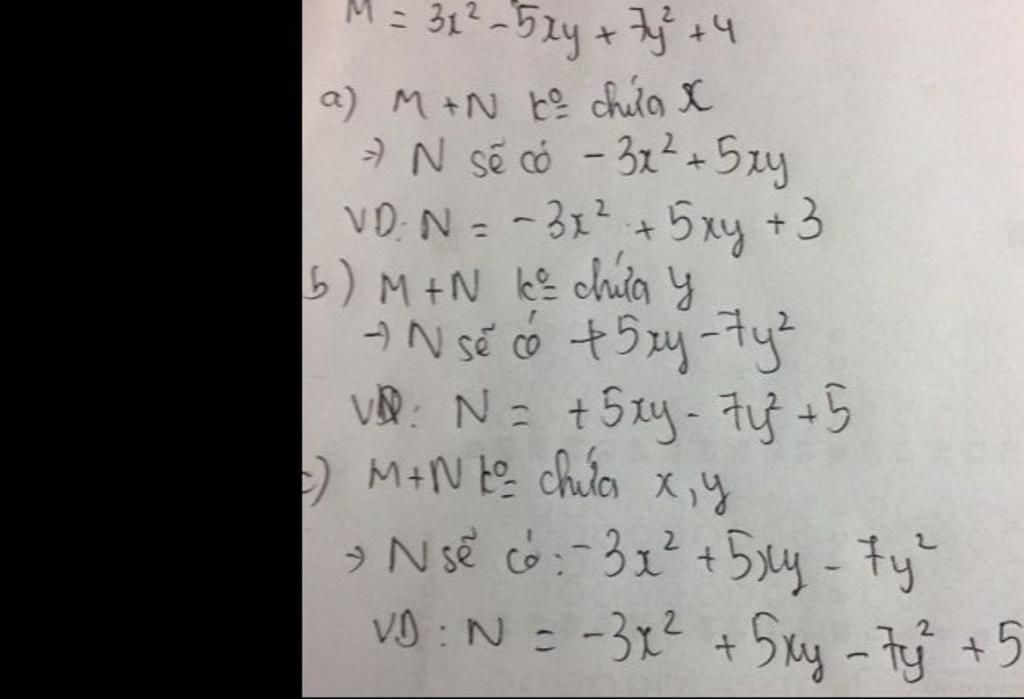 M = 3x² - 5xy + 7y² + 4
a) M + N kº chứa x
=> N sẽ có - 3x² + 5xy
VD: N = - 3x² + 5xy + 3
b) M + N kº chứa y
→ N sẽ có + 5xy - 7y²
VD: N = + 5xy - 7y² + 5
c) M + N kº chứa x, y
→ N sẽ có: - 3x² + 5xy - 7y²
VD: N = - 3x² + 5xy - 7y² + 5